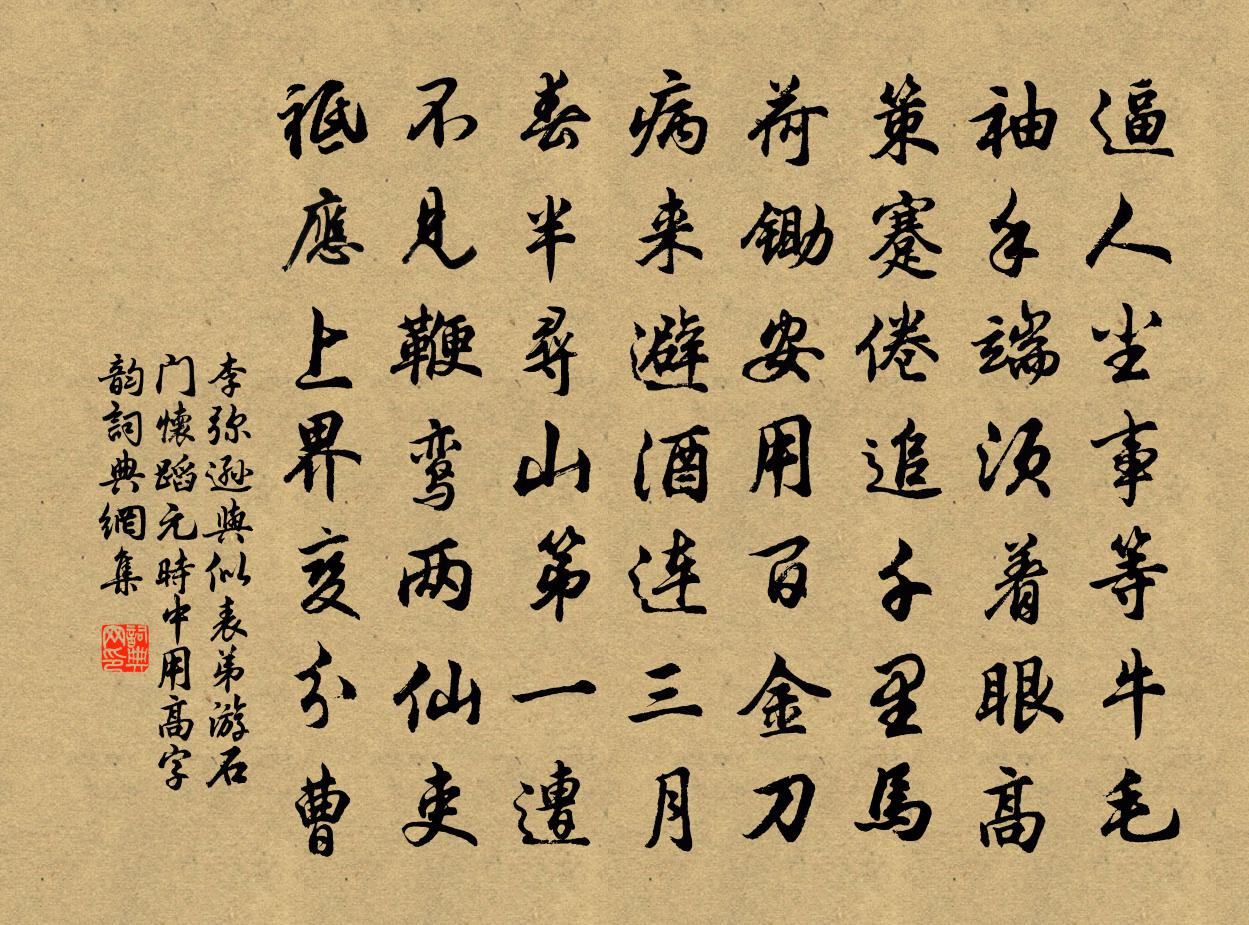 逼人尘事等牛毛
袖手端须着眼高
策蹇倦追千里馬
荷鋤安用百金刀
病来避酒连三月
春半尋山第一遭
不見鞭鸾两仙吏
祗應上界变分曹
李弥遜與似表弟游石
门懷蹈元時中用高字
韵詞典網集
詞典
网印